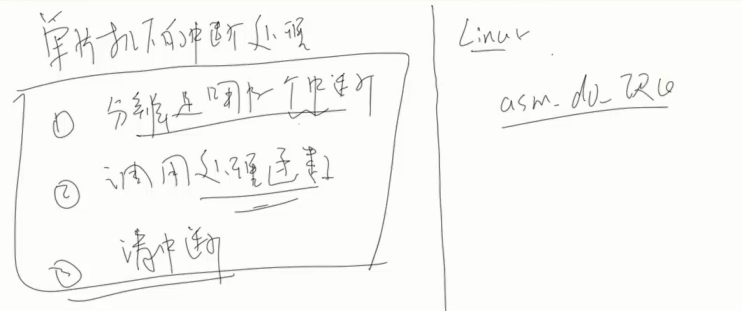 单片机下的中断处理
① 分辨是哪个中断
② 调用处理函数
③ 清中断
Linux
asm_do_IRQ